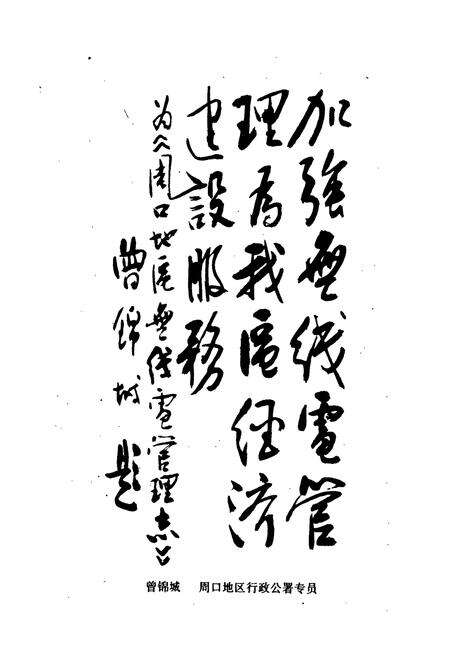 加强無线電管
理为我區经济
建設服務
为《周口地區無线電管理志》
曾锦城 题
曾锦城 周口地区行政公署专员